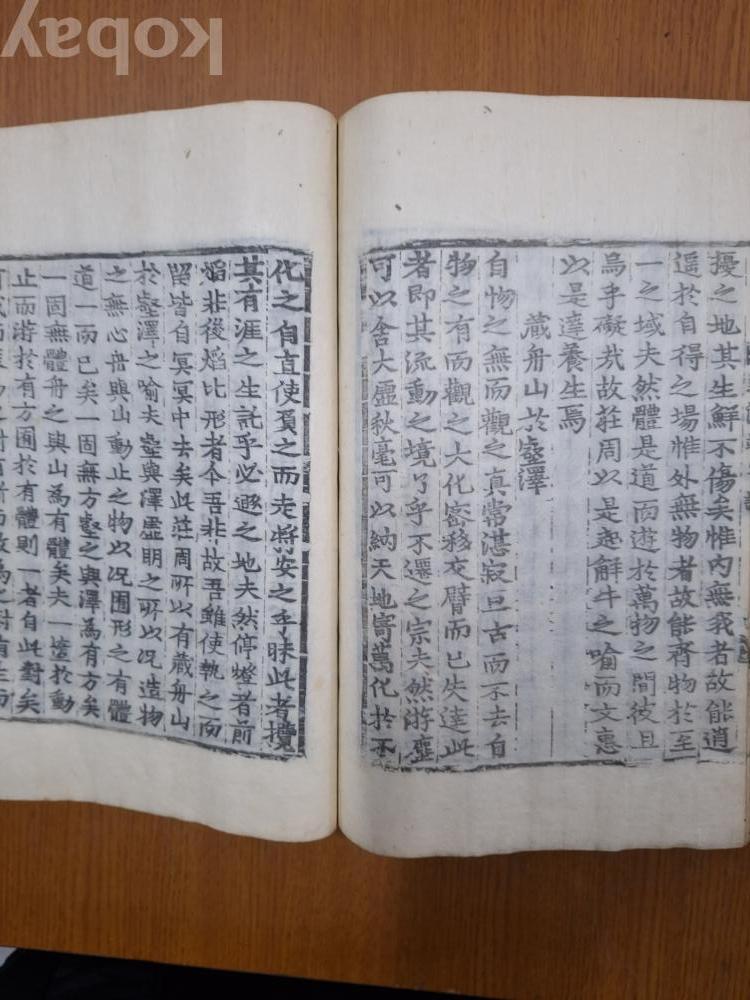 kobay
擾之地其生鮮不傷矣惟内無我者故能逍
遥於自得之場惟外無物者故能齊物於至
一之域夫然體是道而遊於萬物之間彼且
烏乎礙哉故莊周以是起解牛之喻而文惠
以是達養生焉
藏舟山於壑澤
自物之無而觀之真常湛寂亘古而不去自
物之有而觀之大化密移交臂而已失達此
者即其流動之境了乎不遷之宗夫然游塵
可以含大虛秋毫可以納天地寄萬化於不
化之自直使負之而走將安之乎昧此者攬
其有涯之生託乎必遯之地夫然停燈者前
焰非後焰比形者今吾非故吾雖使執之而
留皆自冥冥中去矣此莊周所以有藏舟山
於壑澤之喻夫壑與澤虛明之所以况造物
之無心舟與山動止之物以况囿形之有體
道一而已矣一固無方壑之與澤為有方矣
一固無體舟之與山為有體矣夫一墮於動
止而游於有方囿於有體則一者自此對矣